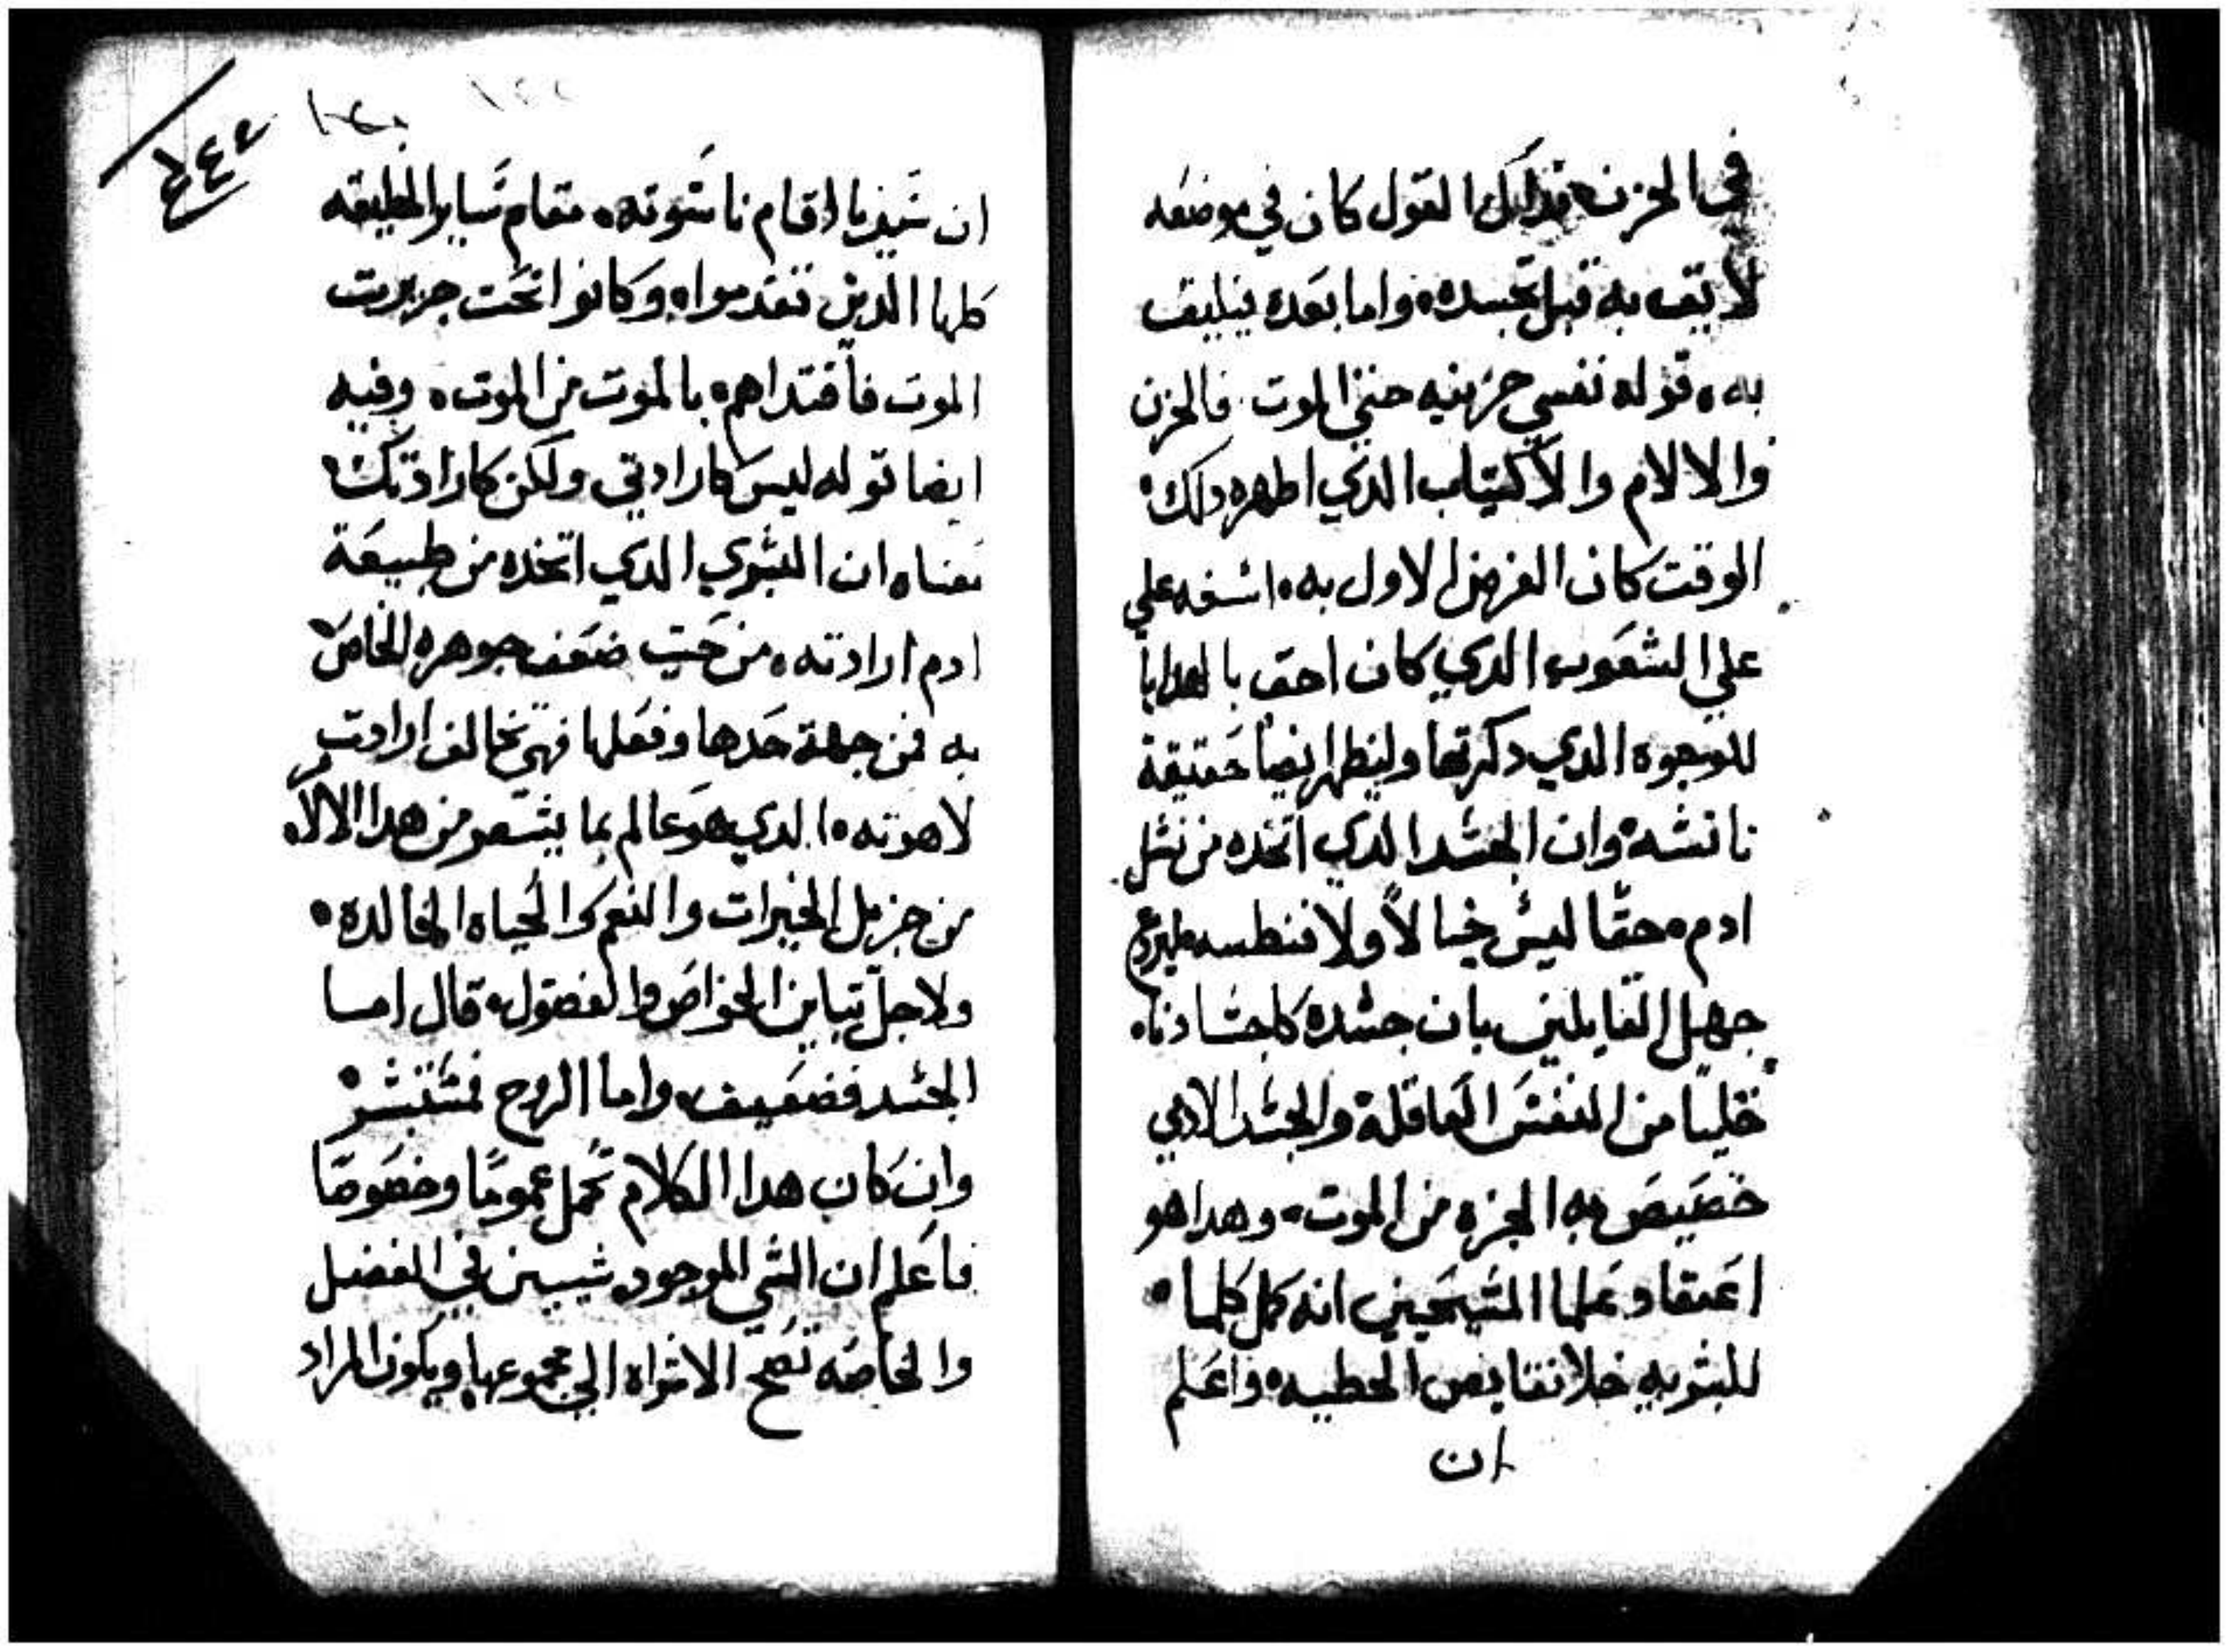 في الحزن فذلك القول كان في موضعه
لايق به قبل تجسده واما بعده فيليق
به قوله نفسي حزينه حتي الموت فالحزن
والالام والاكتياب الدي اظهره دلك
الوقت كان الغرض الاول به اسفه علي
علي الشعوب الدي كان احق بالهدايا
للوجوه الدي دكرتها وليظهر ايضا حقيقة
تانسه وان الجسد الدي اتخده من نسل
ادم حقا ليس خيالا ولا فنطسه
جهل القايلين بان جسده كاجسادنا
خليا من النفس العاقلة والجسد الادمي
خصيص به الجزء من الموت وهدا هو
اعتقاد علما المسيحيين انه كمل كلما
للبشريه خلا نقايص الخطيه واعلم
ان
ان سيدنا اقام ناسوته مقام ساير الخليقه
كلها الدين تقدمواه وكانوا تحت جريرت
الموت فافتداهم بالموت من الموت وفيه
ايضا قوله ليس كارادتي ولكن كارادتك
معناه ان البشري الدي اتخده من طبيعة
ادم ارادته من حيت ضعف جوهره الخاص
به فمن جهة حدها وفعلها فهي تخالف ارادت
لاهوته الدي هو عالم بما يتمر من هدا الالام
من جزيل الخيرات والنعم والحياه الخالده
ولاجل تباين الخواص والفصول قال اما
الجسد فضعيف واما الروح فمستبشر
وان كان هدا الكلام تحمل عموما وخصوصا
فاعلم ان الشي الموجود شيين في الفصل
والخاصه تصح الاشراه الي مجموعها ويكون المراد